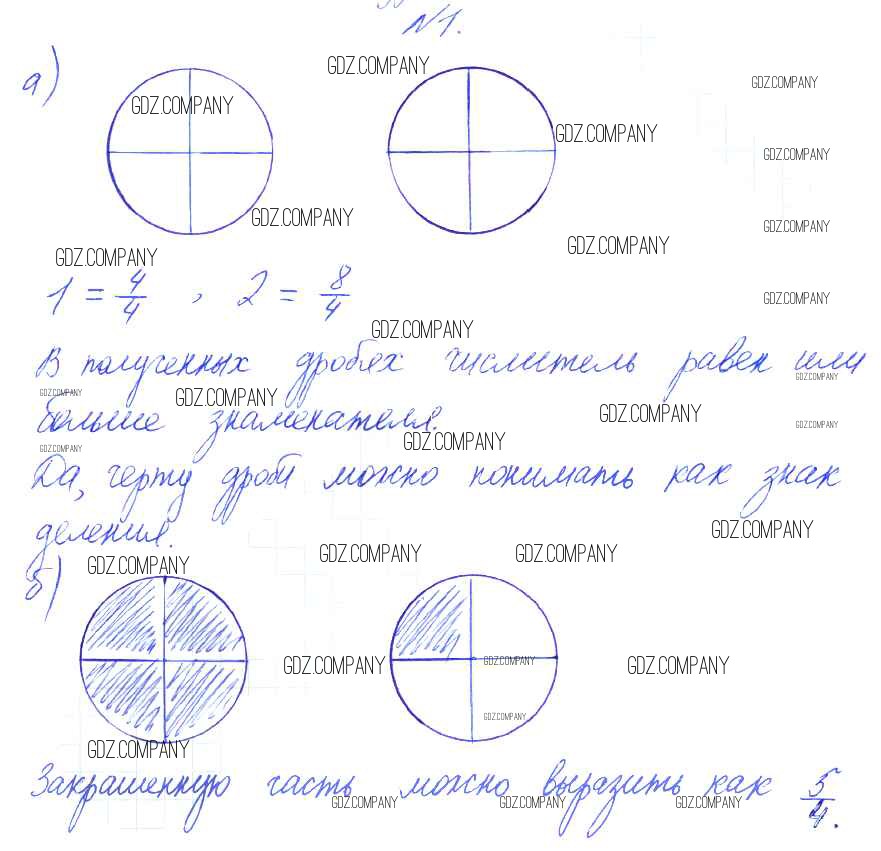 №1.
а)
GDZ.COMPANY
GDZ.COMPANY
GDZ.COMPANY
GDZ.COMPANY
GDZ.COMPANY
GDZ.COMPANY
GDZ.COMPANY
GDZ.COMPANY
GDZ.COMPANY
GDZ.COMPANY
1 = 4/4 , 2 = 8/4
GDZ.COMPANY
GDZ.COMPANY
В полученных дробях числитель равен или
GDZ.COMPANY
GDZ.COMPANY
GDZ.COMPANY
GDZ.COMPANY
больше знаменателя.
GDZ.COMPANY
GDZ.COMPANY
GDZ.COMPANY
Да, черту дроби можно понимать как знак
GDZ.COMPANY
деления.
GDZ.COMPANY
GDZ.COMPANY
GDZ.COMPANY
б)
GDZ.COMPANY
GDZ.COMPANY
GDZ.COMPANY
GDZ.COMPANY
GDZ.COMPANY
Закрашенную часть можно выразить как 5/4.
GDZ.COMPANY
GDZ.COMPANY
GDZ.COMPANY